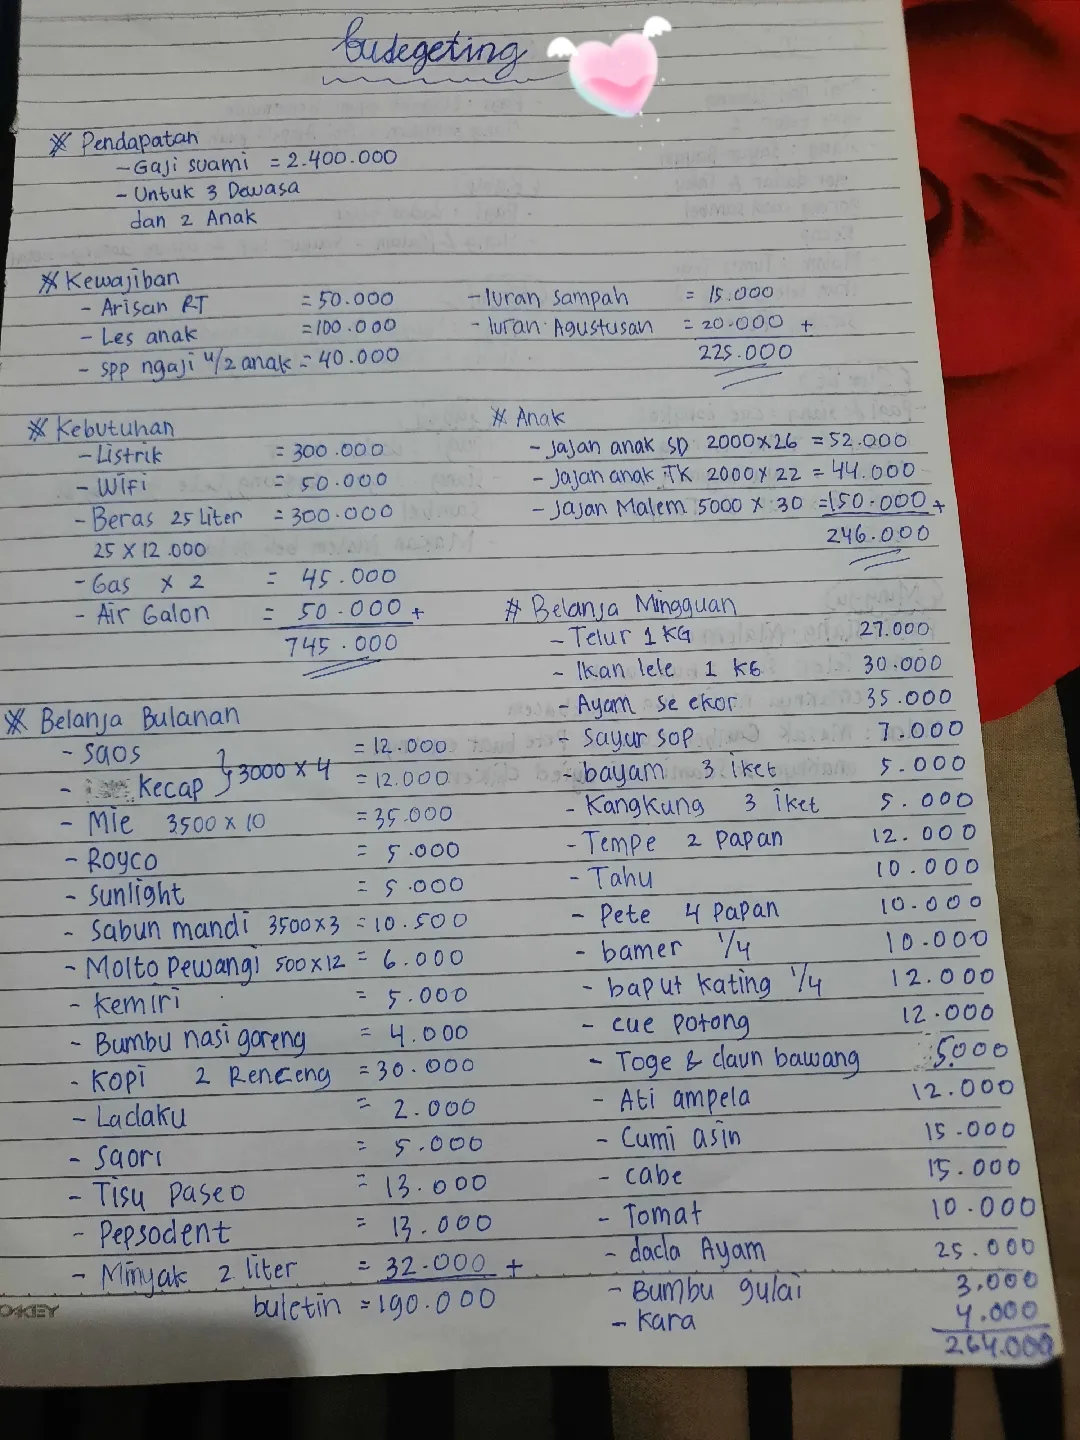 budegeting
* Pendapatan
- Gaji suami = 2.400.000
- Untuk 3 Dewasa
dan 2 Anak
* Kewajiban
- Arisan RT = 50.000
- Les anak = 100.000
- spp ngaji u/2 anak = 40.000
- Iuran sampah = 15.000
- Iuran Agustusan = 20.000 +
225.000
* Kebutuhan
- Listrik = 300.000
- Wifi = 50.000
- Beras 25 Liter = 300.000
25 x 12.000
- Gas x 2 = 45.000
- Air Galon = 50.000 +
745.000
* Anak
- Jajan anak SD 2000x26 = 52.000
- Jajan anak TK 2000x22 = 44.000
- Jajan Malem 5000 x 30 = 150.000 +
246.000
* Belanja Bulanan
- Saos } 3000 x 4 = 12.000
- Kecap = 12.000
- Mie 3500 x 10 = 35.000
- Royco = 5.000
- Sunlight = 5.000
- Sabun mandi 3500x3 = 10.500
- Molto pewangi 500x12 = 6.000
- Kemiri = 5.000
- Bumbu nasi goreng = 4.000
- Kopi 2 Renceng = 30.000
- Ladaku = 2.000
- Saori = 5.000
- Tisu Paseo = 13.000
- Pepsodent = 13.000
- Minyak 2 liter = 32.000 +
buletin = 190.000
# Belanja Mingguan
- Telur 1 KG 27.000
- Ikan lele 1 KG 30.000
- Ayam se ekor 35.000
- Sayur sop 7.000
- bayam 3 iket 5.000
- Kangkung 3 iket 5.000
- Tempe 2 papan 12.000
- Tahu 10.000
- Pete 4 papan 10.000
- bamer 1/4 10.000
- baput kating 1/4 12.000
- cue potong 12.000
- Toge & daun bawang 5000
- Ati ampela 12.000
- Cumi asin 15.000
- cabe 15.000
- Tomat 10.000
- dada Ayam 25.000
- Bumbu gulai 3.000
- Kara 4.000
264.000